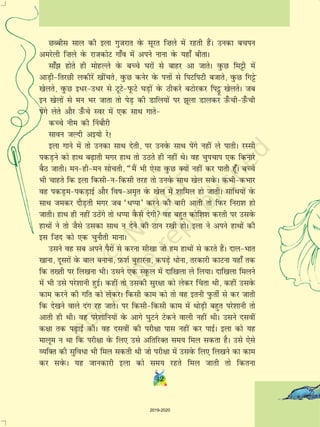 छब्बीस साल की इला गुजरात के सूरत ज़िले में रहती हैं। उनका बचपन
अमरेली ज़िले के राजकोट गाँव में अपने नाना के यहाँ बीता।
साँझ होते ही मोहल्ले के बच्चे घरों से बाहर आ जाते। कुछ मिट्टी में
आड़ी-तिरछी लकीरें खींचते, कुछ कनेर के पत्तों से पिटपिटी बजाते, कुछ गिट्टे
खेलते, कुछ इधर-उधर से टूटे-फूटे घड़ों के ठीकरे बटोरकर पिट्ठू खेलते। जब
इन खेलों से मन भर जाता तो पेड़ की डालियों पर झूला डालकर ऊँची-ऊँची
पेंगे लेते और ऊँचे स्वर में एक साथ गाते-
कच्चे नीम की निंबौरी
सावन जल्दी अइयो रे!
इला गाने में तो उनका साथ देती, पर उनके साथ पेंगें नहीं ले पाती। रस्सी
पकड़ने को हाथ बढ़ाती मगर हाथ तो उठते ही नहीं थे। वह चुपचाप एक किनारे
बैठ जाती। मन-ही-मन सोचती, “मैं भी ऐसा कुछ क्यों नहीं कर पाती हूँ। बच्चे
भी चाहते कि इला किसी-न-किसी तरह तो उनके साथ खेल सके। कभी-कभार
वह पकड़म-पकड़ाई और विष-अमृत के खेल में शामिल हो जाती। साथियों के
साथ जमकर दौड़ती मगर जब ‘धप्पा’ करने की बारी आती तो फिर निराश हो
जाती। हाथ ही नहीं उठेंगे तो धप्पा कैसे देगी? वह बहुत कोशिश करती पर उसके
हाथों ने तो जैसे उसका साथ न देने की ठान रखी हो। इला ने अपने हाथों की
इस जिद को एक चुनौती माना।
उसने वह सब अपने पैरों से करना सीखा जो हम हाथों से करते हैं। दाल-भात
खाना, दूसरों के बाल बनाना, फ़र्श बुहारना, कपड़े धोना, तरकारी काटना यहाँ तक
कि तख्ती पर लिखना भी। उसने एक स्कूल में दाखिला ले लिया। दाखिला मिलने
में भी उसे परेशानी हुई। कहीं तो उसकी सुरक्षा को लेकर चिंता थी, कहीं उसके
काम करने की गति को लेकर। किसी काम को तो वह इतनी फुर्ती से कर जाती
कि देखने वाले दंग रह जाते। पर किसी-किसी काम में थोड़ी बहुत परेशानी तो
आती ही थी। वह परेशानियों के आगे घुटने टेकने वाली नहीं थी। उसने दसवीं
कक्षा तक पढ़ाई की। वह दसवीं की परीक्षा पास नहीं कर पाई। इला को यह
मालूम न था कि परीक्षा के लिए उसे अतिरिक्त समय मिल सकता है। उसे ऐसे
व्यक्ति की सुविधा भी मिल सकती थी जो परीक्षा में उसके लिए लिखने का काम
कर सके। यह जानकारी इला को समय रहते मिल जाती तो कितना
2019-2020